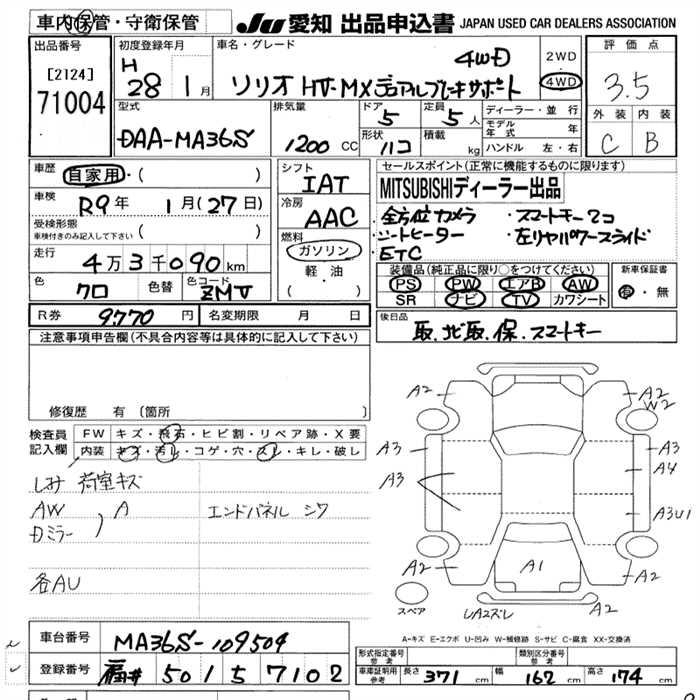 車内保管・守衛保管
JU 愛知 出品申込書 JAPAN USED CAR DEALERS ASSOCIATION
出品番号
[2124]
71004
初度登録年月
H 28 1月
車名・グレード
4WD
ソリオ HV-MX デュアルブレーキサポート
2WD
4WD
評価点
3.5
外装 内装
C B
型式
DAA-MA36S
排気量
1200 CC
ドア 5
形状 ハコ
定員 5 人
積載 kg
ディーラー・並行
モデル年式 年
ハンドル 左・右
車歴
自家用・( )
車検
R9年 1月(27日)
受検形態
車検付きのみ記入して下さい ( )
走行
4万3千090km
色 クロ 色替 色コード ZMV
シフト
IAT
冷房
AAC
燃料
ガソリン
軽・油
( )
セールスポイント(正常に機能するものに限ります)
MITSUBISHIディーラー出品
・全方位カメラ ・スマートキー2コ
・シートヒーター ・左リヤパワースライド
・ETC
装備品(純正品に限り○をつけてください)
PS PW エアB AW
SR ナビ TV カワシート
新車保証書
有・無
R券 9770円 名変期限 月 日
後日品
取、北取、保、スマートキー
注意事項申告欄(不具合内容等は具体的に記入して下さい)
修復歴 有 〔箇所 〕
検査員記入欄
FW キズ・飛石・ヒビ割・リペア跡・X要
内装 キズ・汚レ・コゲ・穴・スレ・キレ・破レ
しみ 荷室キズ
AW
Dミラー ) A
エンドパネル シワ
各AU
A2 A2
W2
A3 A3
A3 A4
A3U1
A2 A1 A2
スペア LA2スレ A2
A-キズ E-エクボ U-凹み W-補修跡 S-サビ C-腐食 XX-交換済
車台番号 MA36S-109504
登録番号 福井 501 5 7102
形式指定番号 参考
類別区分番号 参考
車庫証明用参考 長さ 371 cm 幅 162 cm 高さ 174 cm